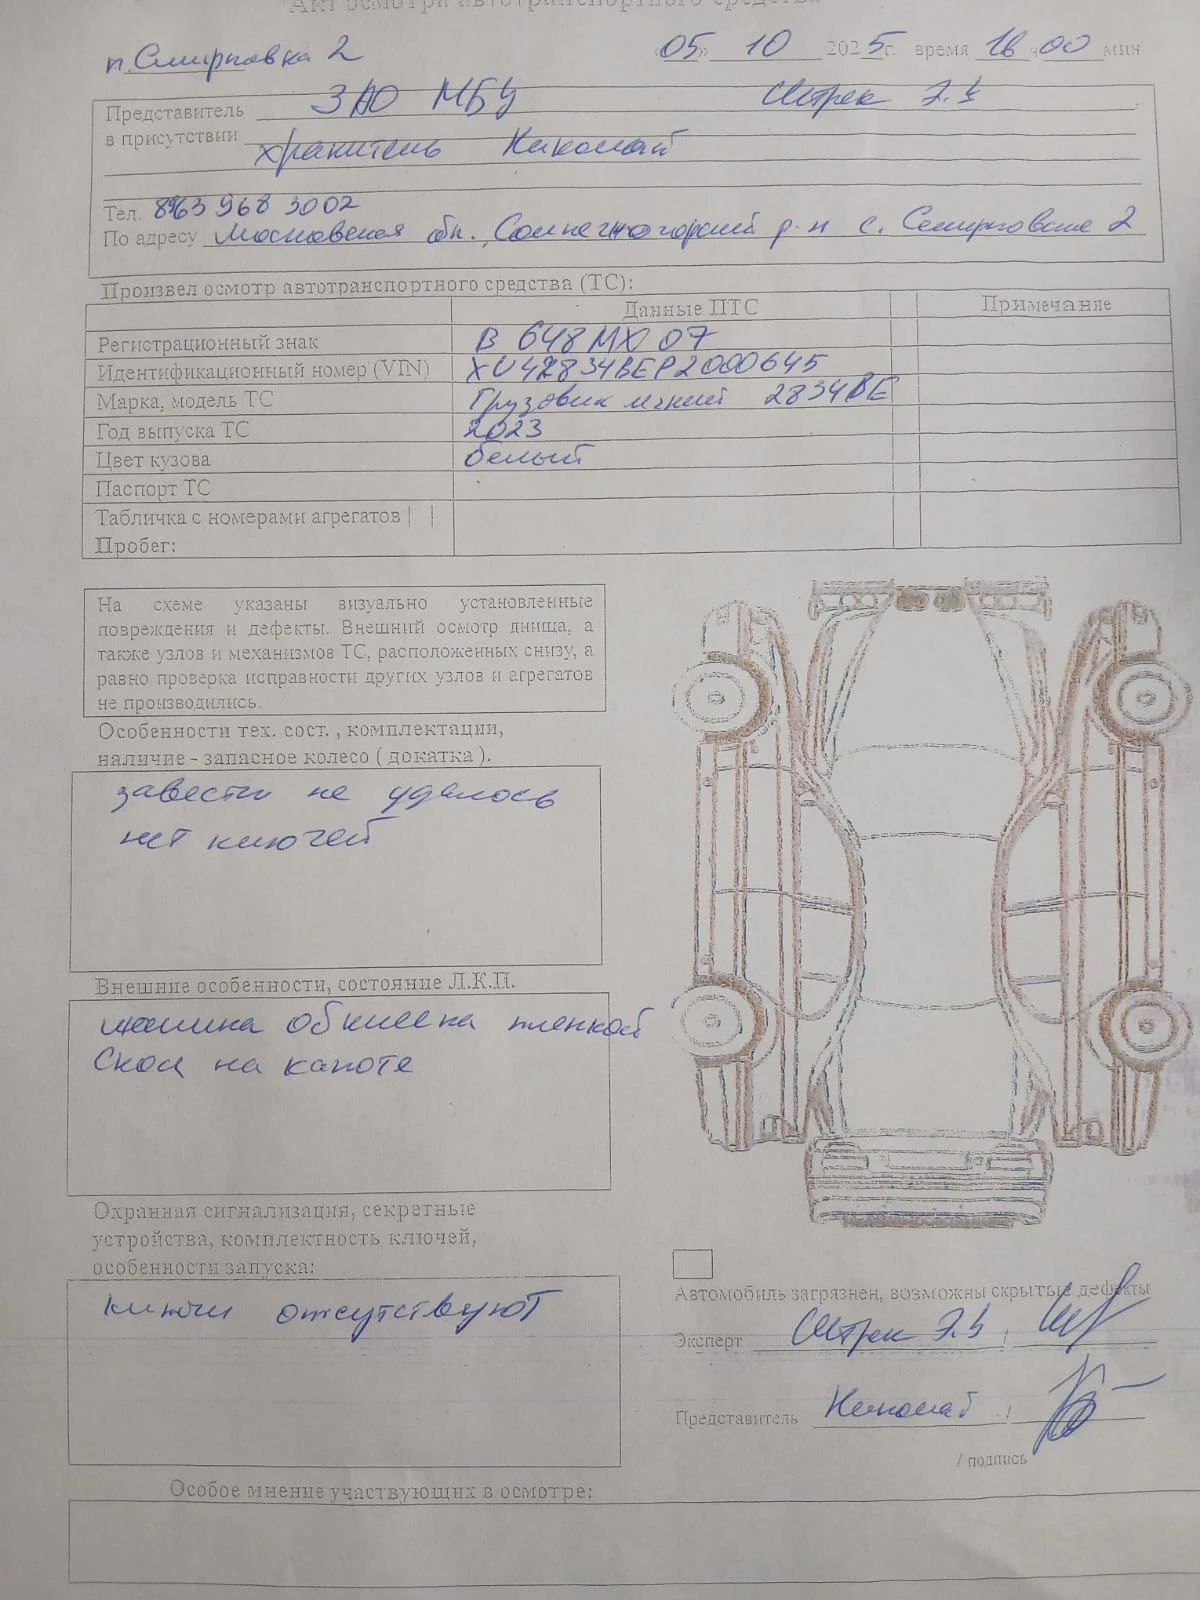 Акт осмотра автотранспортного средства
п. Смирновка 2 «05» 10 2025г. время 16 ч 00 мин
Представитель ЗАО МБУ Штрек Э.
в присутствии хранитель Николай
Тел. 8963 968 3002
По адресу Московская обл., Солнечногорский р-н с. Смирновка 2
Произвел осмотр автотранспортного средства (ТС):
Данные ПТС Примечание
Регистрационный знак В 648 МХ 07
Идентификационный номер (VIN) XU42834BEP2000645
Марка, модель ТС Грузовик 2834ВЕ
Год выпуска ТС 2023
Цвет кузова белый
Паспорт ТС
Табличка с номерами агрегатов | |
Пробег:
На схеме указаны визуально установленные
повреждения и дефекты. Внешний осмотр днища, а
также узлов и механизмов ТС, расположенных снизу, а
равно проверка исправности других узлов и агрегатов
не производились.
Особенности тех. сост. , комплектации,
наличие - запасное колесо ( докатка ).
завести не удалось
нет ключей
Внешние особенности, состояние Л.К.П.
машина обклеена пленкой
Скол на капоте
Охранная сигнализация, секретные
устройства, комплектность ключей,
особенности запуска:
ключи отсутствуют
Автомобиль загрязнен, возможны скрытые дефекты
Эксперт Штрек Э. /
Представитель Николай /
/ подпись
Особое мнение участвующих в осмотре: